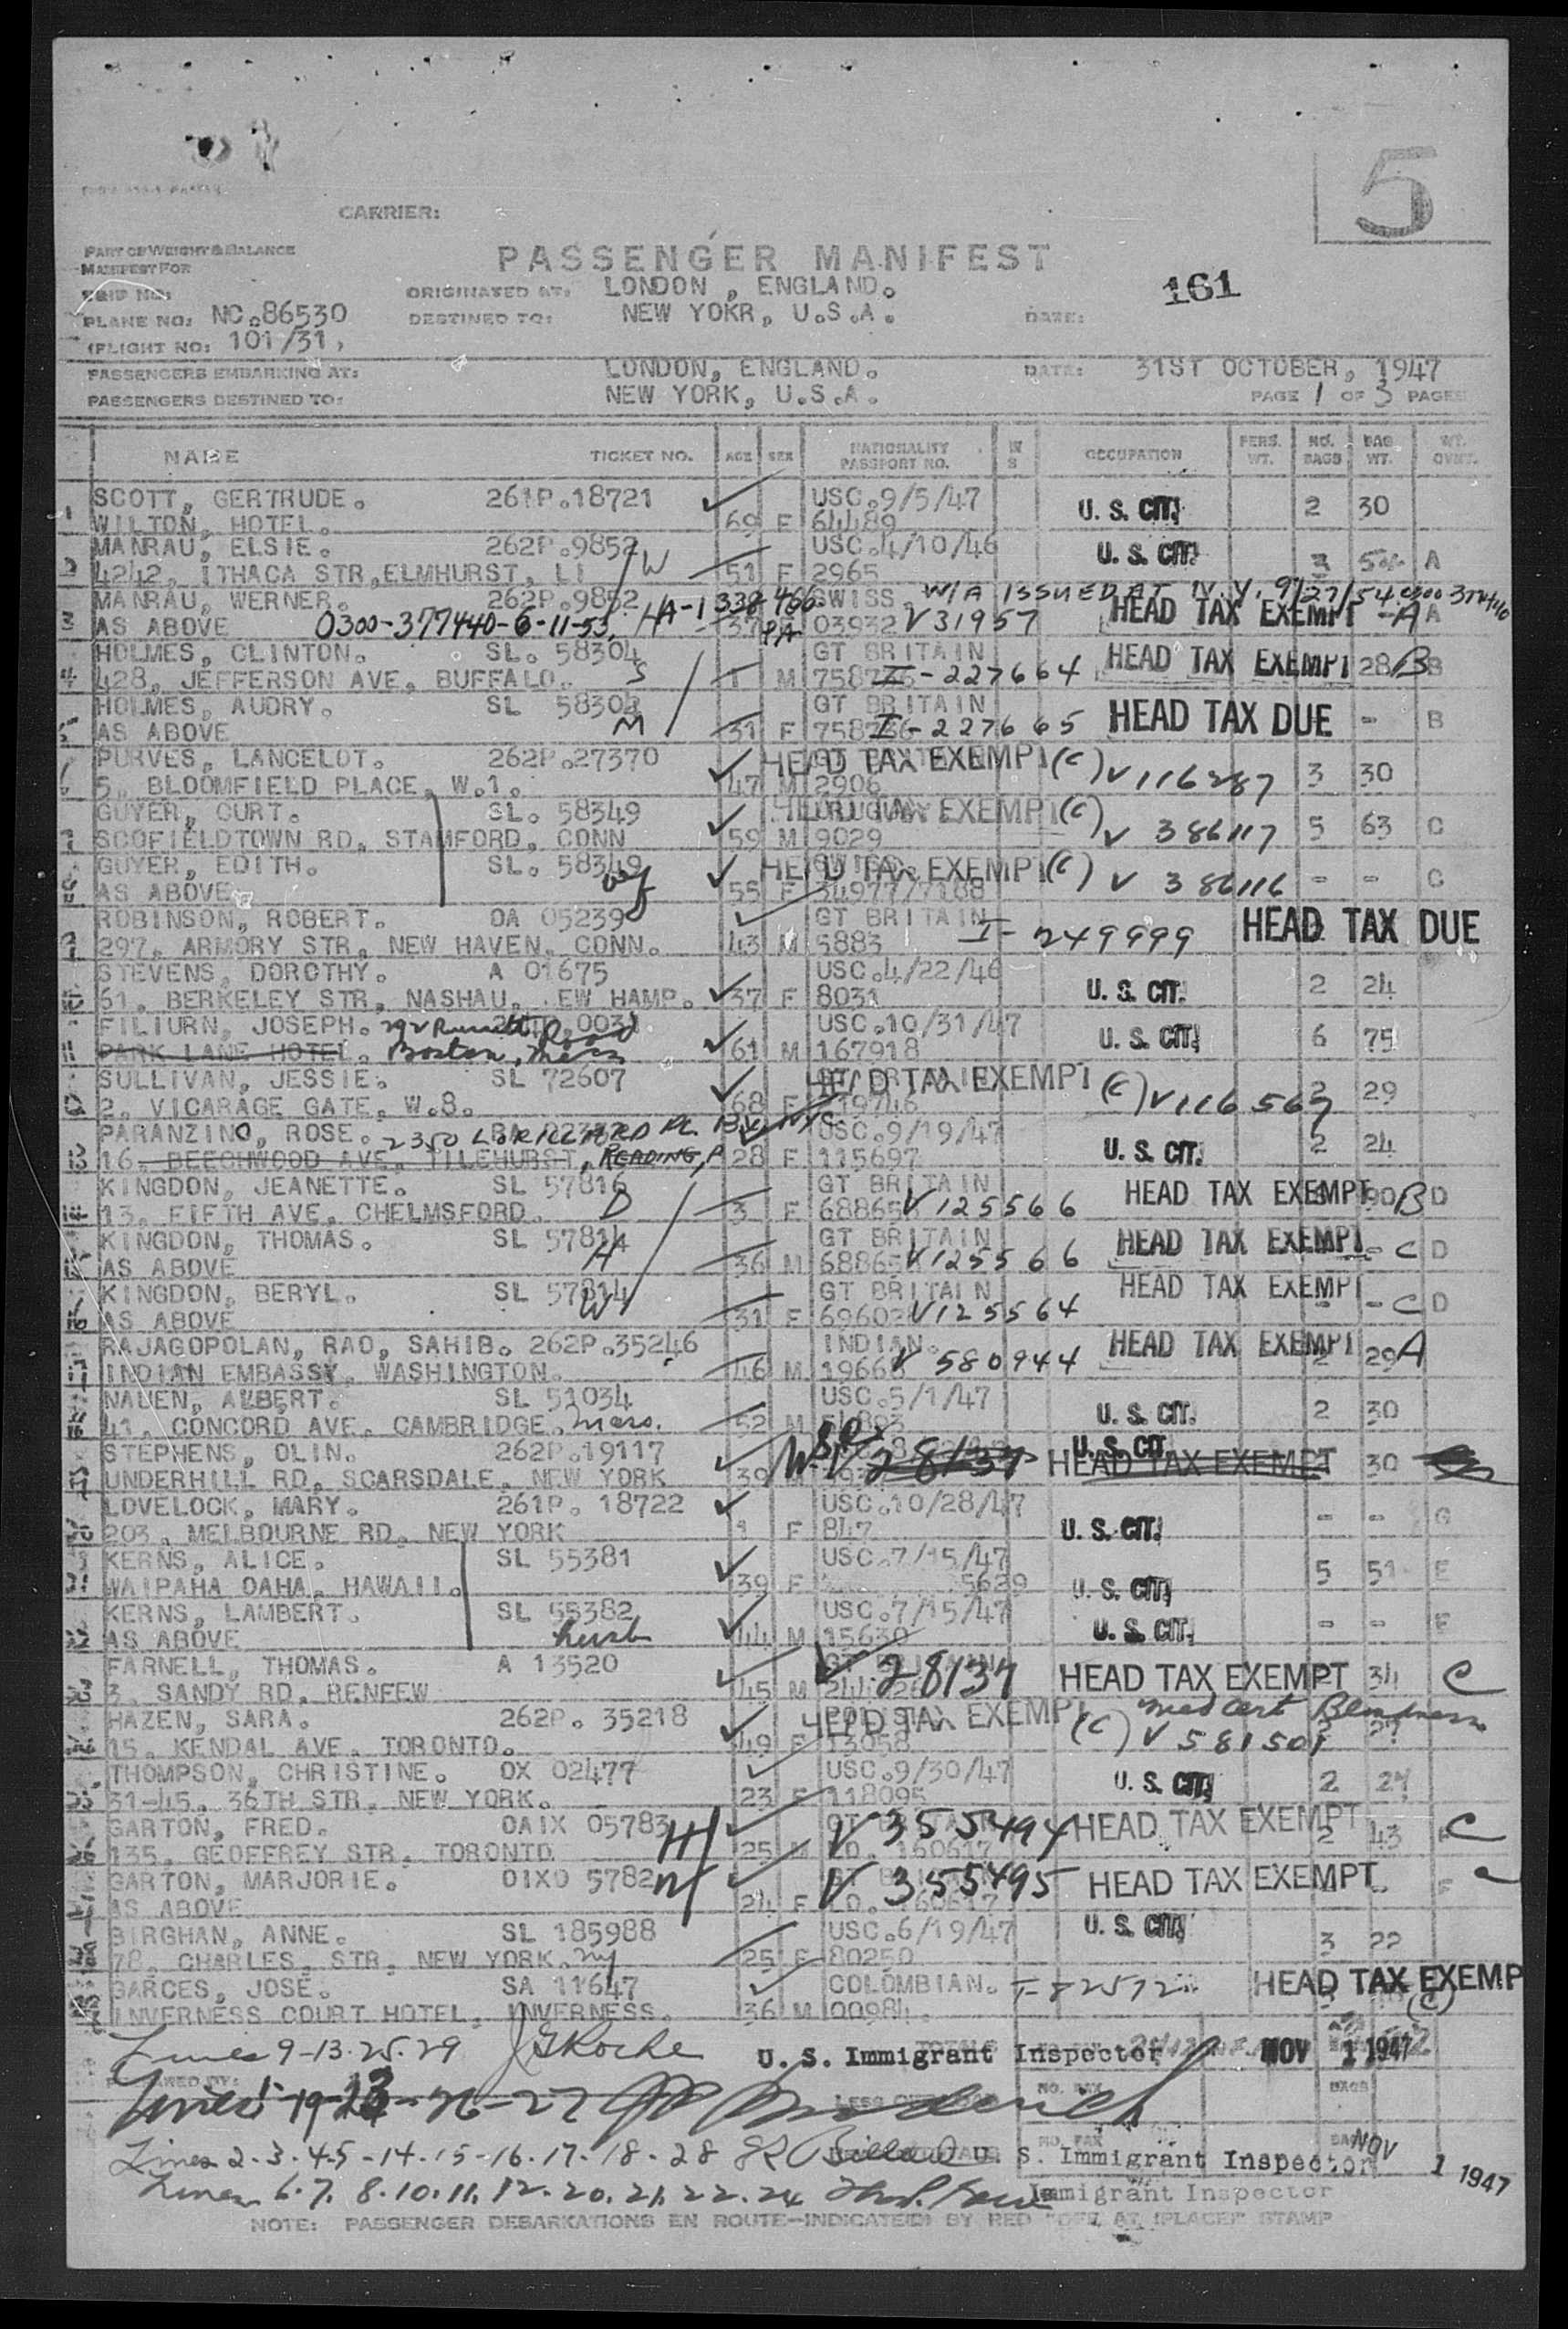 5
CARRIER:
PART OF WEIGHT & BALANCE
MANIFEST FOR
PASSENGER MANIFEST
161
SHIP NO:
ORIGINATED AT: LONDON , ENGLAND.
PLANE NO: NC.86530
DESTINED TO: NEW YOKR, U.S.A.
DATE:
(FLIGHT NO: 101/31,
PASSENGERS EMBARKING AT: LONDON, ENGLAND. DATE: 31ST OCTOBER, 1947
PASSENGERS DESTINED TO: NEW YORK, U.S.A. PAGE 1 OF 3 PAGES
NAME TICKET NO. AGE SEX NATIONALITY PASSPORT NO. OCCUPATION PERS. WT. NO. BAGS BAG WT. WT. OVNT.
1 SCOTT, GERTRUDE. 261P.18721 USC.9/5/47 U. S. CIT. 2 30
WILTON, HOTEL. 69 F 64489
2 MANRAU, ELSIE. 262P.9852 W USC.4/10/46 U. S. CIT.
4242, ITHACA STR,ELMHURST, LI 51 F 2965 A
3 MANRAU, WERNER. 262P.9852 SWISS. W/A ISSUED AT N.Y. 9/27/54
AS ABOVE 0300-377440-6-11-53, HA-1 338 466 03932 V31957 HEAD TAX EXEMPT -A A
4 HOLMES, CLINTON. SL. 58304 GT BRITAIN HEAD TAX EXEMPT 28 B B
428, JEFFERSON AVE, BUFFALO. S M I-227664
5 HOLMES, AUDRY. SL 58304 GT BRITAIN
AS ABOVE M 31 F I-227665 HEAD TAX DUE - B
6 PURVES, LANCELOT. 262P.27370 HEAD TAX EXEMPT (C) V116287 3 30
5, BLOOMFIELD PLACE, W.1. 47 M 2906
7 GUYER, CURT. SL. 58349 EXEMPT (C) V 386117 5 63 C
SCOFIELDTOWN RD, STAMFORD, CONN 59 M 9029
8 GUYER, EDITH. SL. 58349 HEAD TAX EXEMPT (C) V 386116 - - C
AS ABOVE 55 F
9 ROBINSON, ROBERT. OA 05239 GT BRITAIN I-249999 HEAD TAX DUE
297, ARMORY STR, NEW HAVEN, CONN. 43 M 5883
10 STEVENS, DOROTHY. A 01675 USC.4/22/46 U. S. CIT. 2 24
61, BERKELEY STR, NASHAU, EW HAMP. 37 F 8031
11 FILIURN, JOSEPH. USC.10/31/47 U. S. CIT. 6 75
PARK LANE HOTEL. Boston, Mass 61 M 167918
12 SULLIVAN, JESSIE. SL 72607 HEAD TAX EXEMPT (C) V116567 2 29
2, VICARAGE GATE, W.8. 68 F
13 PARANZINO, ROSE. 2350 LORILLARD PL. BX NYC USC.9/19/47 U. S. CIT. 2 24
16, BEECHWOOD AVE, TILEHURST, READING, 28 F 115697
14 KINGDON, JEANETTE. SL 57816 GT BRITAIN HEAD TAX EXEMPT 90 B D
13, FIFTH AVE, CHELMSFORD. D 3 F V125566
15 KINGDON, THOMAS. SL 57814 GT BRITAIN HEAD TAX EXEMPT - C D
AS ABOVE H 36 M V125566
16 KINGDON, BERYL. SL 57814 GT BRITAIN HEAD TAX EXEMPT - C D
AS ABOVE W 31 F V125564
17 RAJAGOPOLAN, RAO, SAHIB. 262P.35246 INDIAN. HEAD TAX EXEMPT 29 A
INDIAN EMBASSY, WASHINGTON. 46 M V 580944
18 NAUEN, ALBERT. SL 51034 USC.5/1/47 U. S. CIT. 2 30
41, CONCORD AVE, CAMBRIDGE. Mass. 52 M
19 STEPHENS, OLIN. 262P.19117 V 28137 U. S. CIT. HEAD TAX EXEMPT 30
UNDERHILL RD, SCARSDALE, NEW YORK 39 M
20 LOVELOCK, MARY. 261P. 18722 USC.10/28/47 U. S. CIT. - - G
203, MELBOURNE RD, NEW YORK F 847
21 KERNS, ALICE. SL 55381 USC.7/15/47 U. S. CIT. 5 51 E
WAIPAHA OAHA, HAWAII. 39 F 5629
22 KERNS, LAMBERT. SL 55382 USC.7/15/47 U. S. CIT. - -
AS ABOVE husb 44 M 15630
23 FARNELL, THOMAS. A 13520 V 28137 HEAD TAX EXEMPT 34 C
3, SANDY RD, RENFEW 45 M
24 HAZEN, SARA. 262P. 35218 HEAD TAX EXEMPT (C) V 581501 med cert Blindness
15, KENDAL AVE, TORONTO. 49 F 13058
25 THOMPSON, CHRISTINE. OX 02477 USC.9/30/47 U. S. CIT. 2 24
31-45, 36TH STR, NEW YORK. 23 F 118095
26 GARTON, FRED. OAIX 05783 H V 355494 HEAD TAX EXEMPT 2 43 C
135, GEOFFREY STR, TORONTO 25 M
27 GARTON, MARJORIE. OIXO 5782 W V 355495 HEAD TAX EXEMPT
AS ABOVE 24 F
28 BIRGHAN, ANNE. SL 185988 USC.6/19/47 U. S. CIT. 3 22
78, CHARLES, STR, NEW YORK. NY 25 F 80250
29 GARCES, JOSE. SA 11647 COLOMBIAN. HEAD TAX EXEMP (C)
INVERNESS COURT HOTEL, INVERNESS. 36 M 00984.
Lines 9-13-25-29 U. S. Immigrant Inspector NOV 1 1947
Lines 1-19-23-26-27
Lines 2-3-4-5-14-15-16-17-18-28 U. S. Immigrant Inspector NOV 1 1947
Lines 6.7. 8.10.11.12.20.21.22.24 Immigrant Inspector
NOTE: PASSENGER DEBARKATIONS EN ROUTE-INDICATED BY RED "OFF AT (PLACE)" STAMP